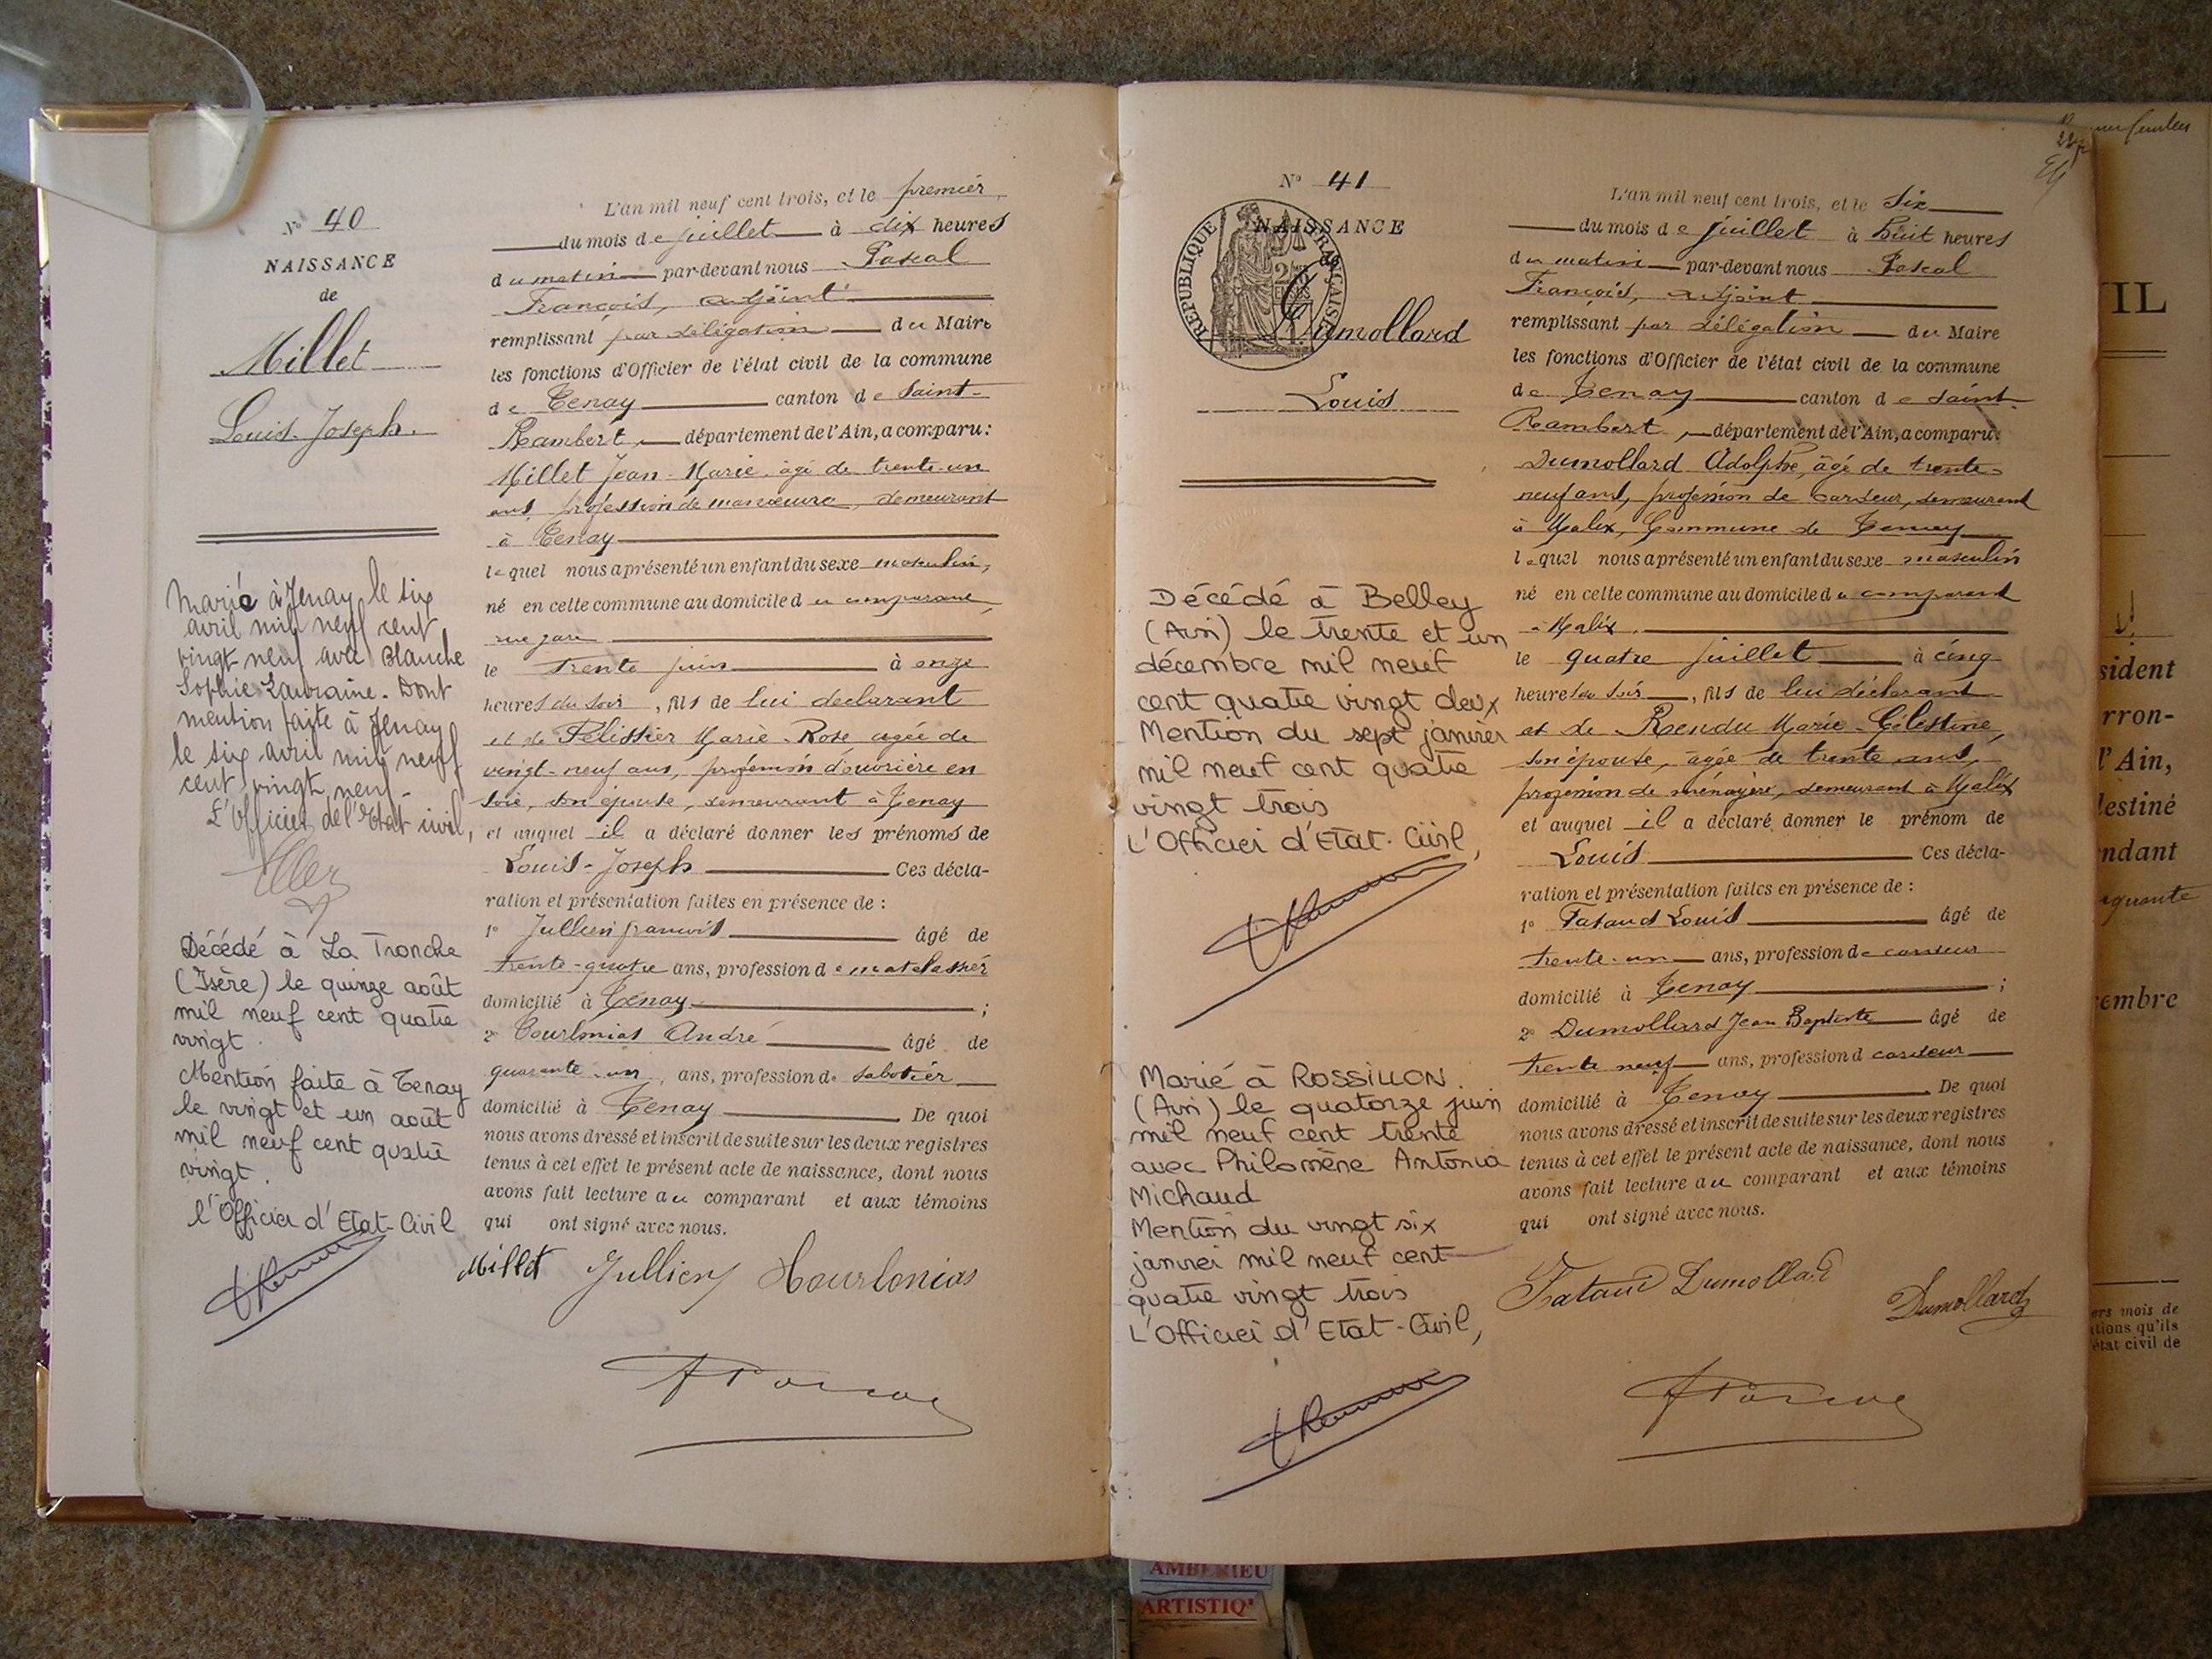 N° 40
NAISSANCE
de
Millet
Louis Joseph.
Marié à Tenay le six
avril mil neuf cent
vingt neuf avec Blanche
Sophie
Dont
mention faite à Tenay
le six avril mil neuf
cent vingt neuf.
L'Officier de l'Etat civil,
Décédé à La Tronche
(Isère) le quinze août
mil neuf cent quatre
vingt.
Mention faite à Tenay
le vingt et un août
mil neuf cent quatre
vingt.
l'Officier d'Etat-Civil
L'an mil neuf cent trois, et le premier
du mois de juillet à dix heures
du matin par-devant nous Pascal
François, adjoint
remplissant par délégation du Maire
les fonctions d'Officier de l'état civil de la commune
de Tenay canton de Saint-
Rambert, département de l'Ain, a comparu:
Millet Jean-Marie âgé de trente-un
ans, profession de manœuvre, demeurant
à Tenay
lequel nous a présenté un enfant du sexe masculin,
né en cette commune au domicile du comparant,
rue gare
le trente juin à onze
heures du soir, fils de lui déclarant
et de Pélissier Marie-Rose âgée de
vingt-neuf ans, profession d'ouvrière en
soie, son épouse, demeurant à Tenay
et auquel il a déclaré donner les prénoms de
Louis-Joseph Ces décla-
ration et présentation faites en présence de :
1° Jullien françois âgé de
trente-quatre ans, profession de matelassier
domicilié à Tenay ;
2° André âgé de
quarante-un, ans, profession de sabotier
domicilié à Tenay De quoi
nous avons dressé et inscrit de suite sur les deux registres
tenus à cet effet le présent acte de naissance, dont nous
avons fait lecture au comparant et aux témoins
qui ont signé avec nous.
Millet Jullien
N° 41
NAISSANCE
de
RÉPUBLIQUE FRANÇAISE
Dumollard
Louis
Décédé à Belley
(Ain) le trente et un
décembre mil neuf
cent quatre vingt deux
Mention du sept janvier
mil neuf cent quatre
vingt trois
L'Officier d'Etat-Civil,
Marié à ROSSILLON.
(Ain) le quatorze juin
mil neuf cent trente
avec Philomène Antonia
Michaud
Mention du vingt six
janvier mil neuf cent
quatre vingt trois
L'Officier d'Etat-Civil,
L'an mil neuf cent trois, et le six
du mois de juillet à huit heures
du matin par-devant nous Pascal
François, adjoint
remplissant par délégation du Maire
les fonctions d'Officier de l'état civil de la commune
de Tenay canton de Saint-
Rambert, département de l'Ain, a comparu:
Dumollard Adolphe, âgé de trente-
neuf ans, profession de cardeur, demeurant
à Malix, Commune de Tenay
lequel nous a présenté un enfant du sexe masculin
né en cette commune au domicile du comparant
à Malix.
le quatre juillet à cinq
heures du soir, fils de lui déclarant
et de Rendu Marie-Célestine,
son épouse, âgée de trente ans,
profession de ménagère, demeurant à Malix
et auquel il a déclaré donner le prénom de
Louis Ces décla-
ration et présentation faites en présence de :
1° Fataud Louis âgé de
trente-un ans, profession de cardeur
domicilié à Tenay ;
2° Dumollard Jean Baptiste âgé de
trente neuf ans, profession d cardeur
domicilié à Tenay De quoi
nous avons dressé et inscrit de suite sur les deux registres
tenus à cet effet le présent acte de naissance, dont nous
avons fait lecture au comparant et aux témoins
qui ont signé avec nous.
Fataud Dumollard
Dumollard
IL
sident
rron-
l'Ain,
lestiné
ndant
cembre
ers mois de
ations qu'ils
état civil de
AMBERIEU
ARTISTIQ'